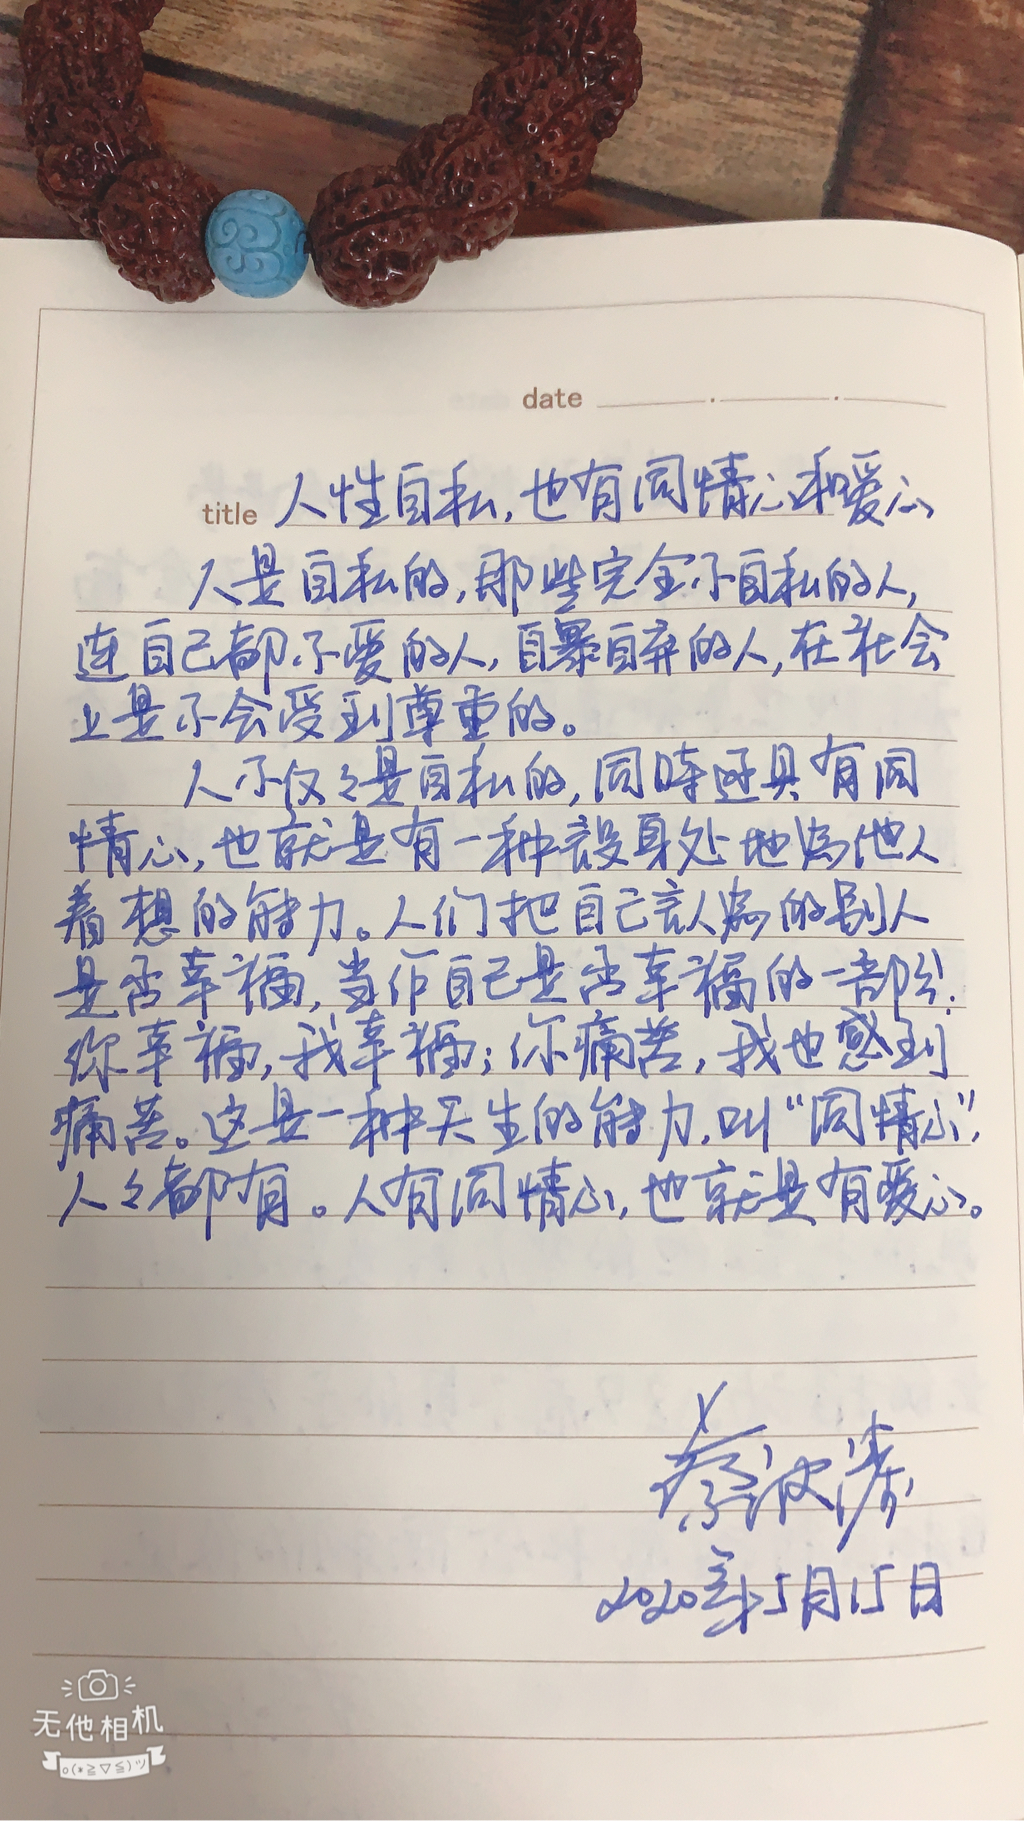 date
title 人性自私，也有同情心和爱心
人是自私的，那些完全不自私的人，
连自己都不爱的人，自暴自弃的人，在社会
上是不会受到尊重的。
人不仅々是自私的，同时还具有同
情心，也就是有一种設身处地為他人
着想的能力。人们把自己認為的别人
是否幸福，当作自己是否幸福的一部分.
你幸福，我幸福；你痛苦，我也感到
痛苦。这是一种天生的能力，叫“同情心”，
人々都有。人有同情心，也就是有爱心。
蔡波涛
2020年5月15日
无他相机
o(*≧▽≦)ツ